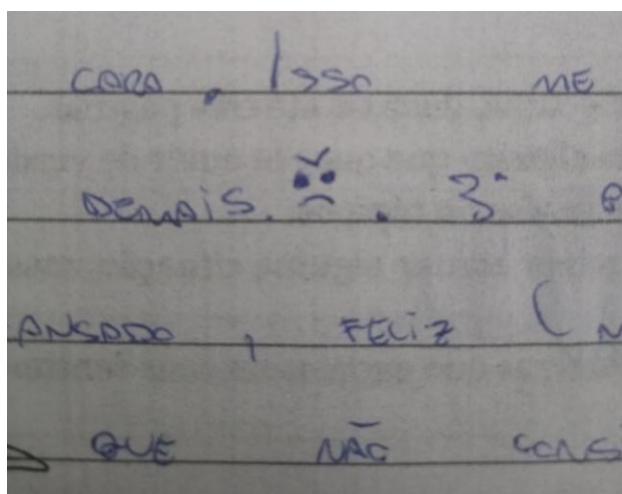 CARA. ISSO ME
DEMAIS. 3°
ANSADO, FELIZ (
QUE NÃO CONS